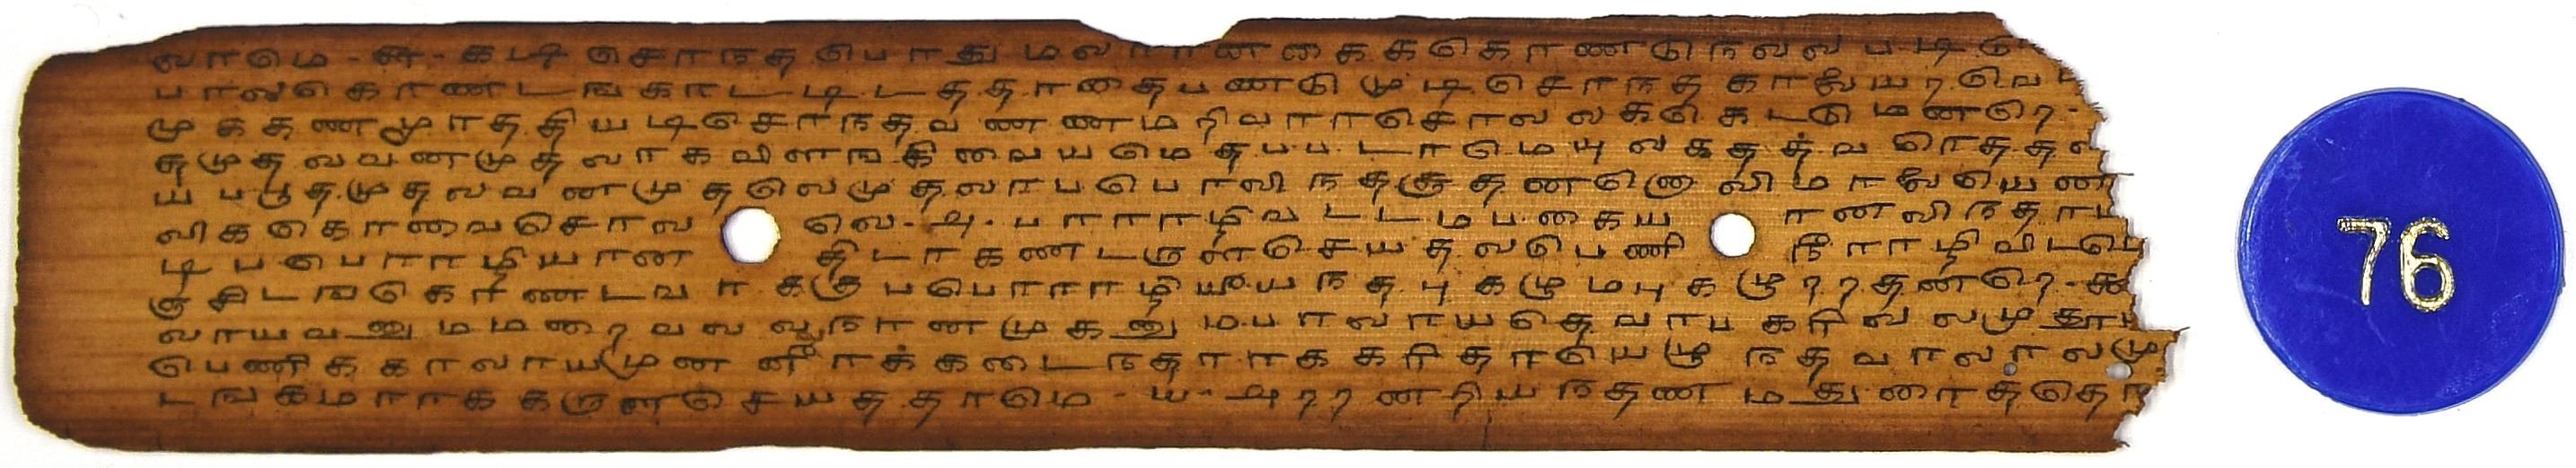 வாமெ-௬-கடி சொநத பொது மலரான கைககொணடு நலல படி
பால கொணடஙகாடடிடத தாதை பணடு முடி சொநத காலெயர வெ
முககண மூாததி யடி சொநத வணணமறிவாா சொலலக கெடடு மனறெ-
தமுதலவன முதலாக விளஙகி வையமெதபபடாமெ யுலகததவ ரெதத
ய பபூத முதலவன முதலெ முதலாப பொலி நத சூதணனொ விமாலெயெண
விககொவை சொல லெ-அ-பாராழி வடடமபகைய ானலிநதாப
டிபபொராழியான திடாகணடருளசெயதலபெணி நீராழிவிட
குசிடஙகொணடவா ககுபபொராழியீயநத புகழு மபுகழுறறதனறெ-௯
வாயவனு மமறைவலலநானமுகனு மபாலாயதெவாப கரிலலமுது
பெணிககாலாயமுன னீாககடைநதாாககரிதாயெழுநதவாலாலமு
டஙகமராககருளசெயததாமெ-ய-அறறனறியநதண மதுரைததொ
76